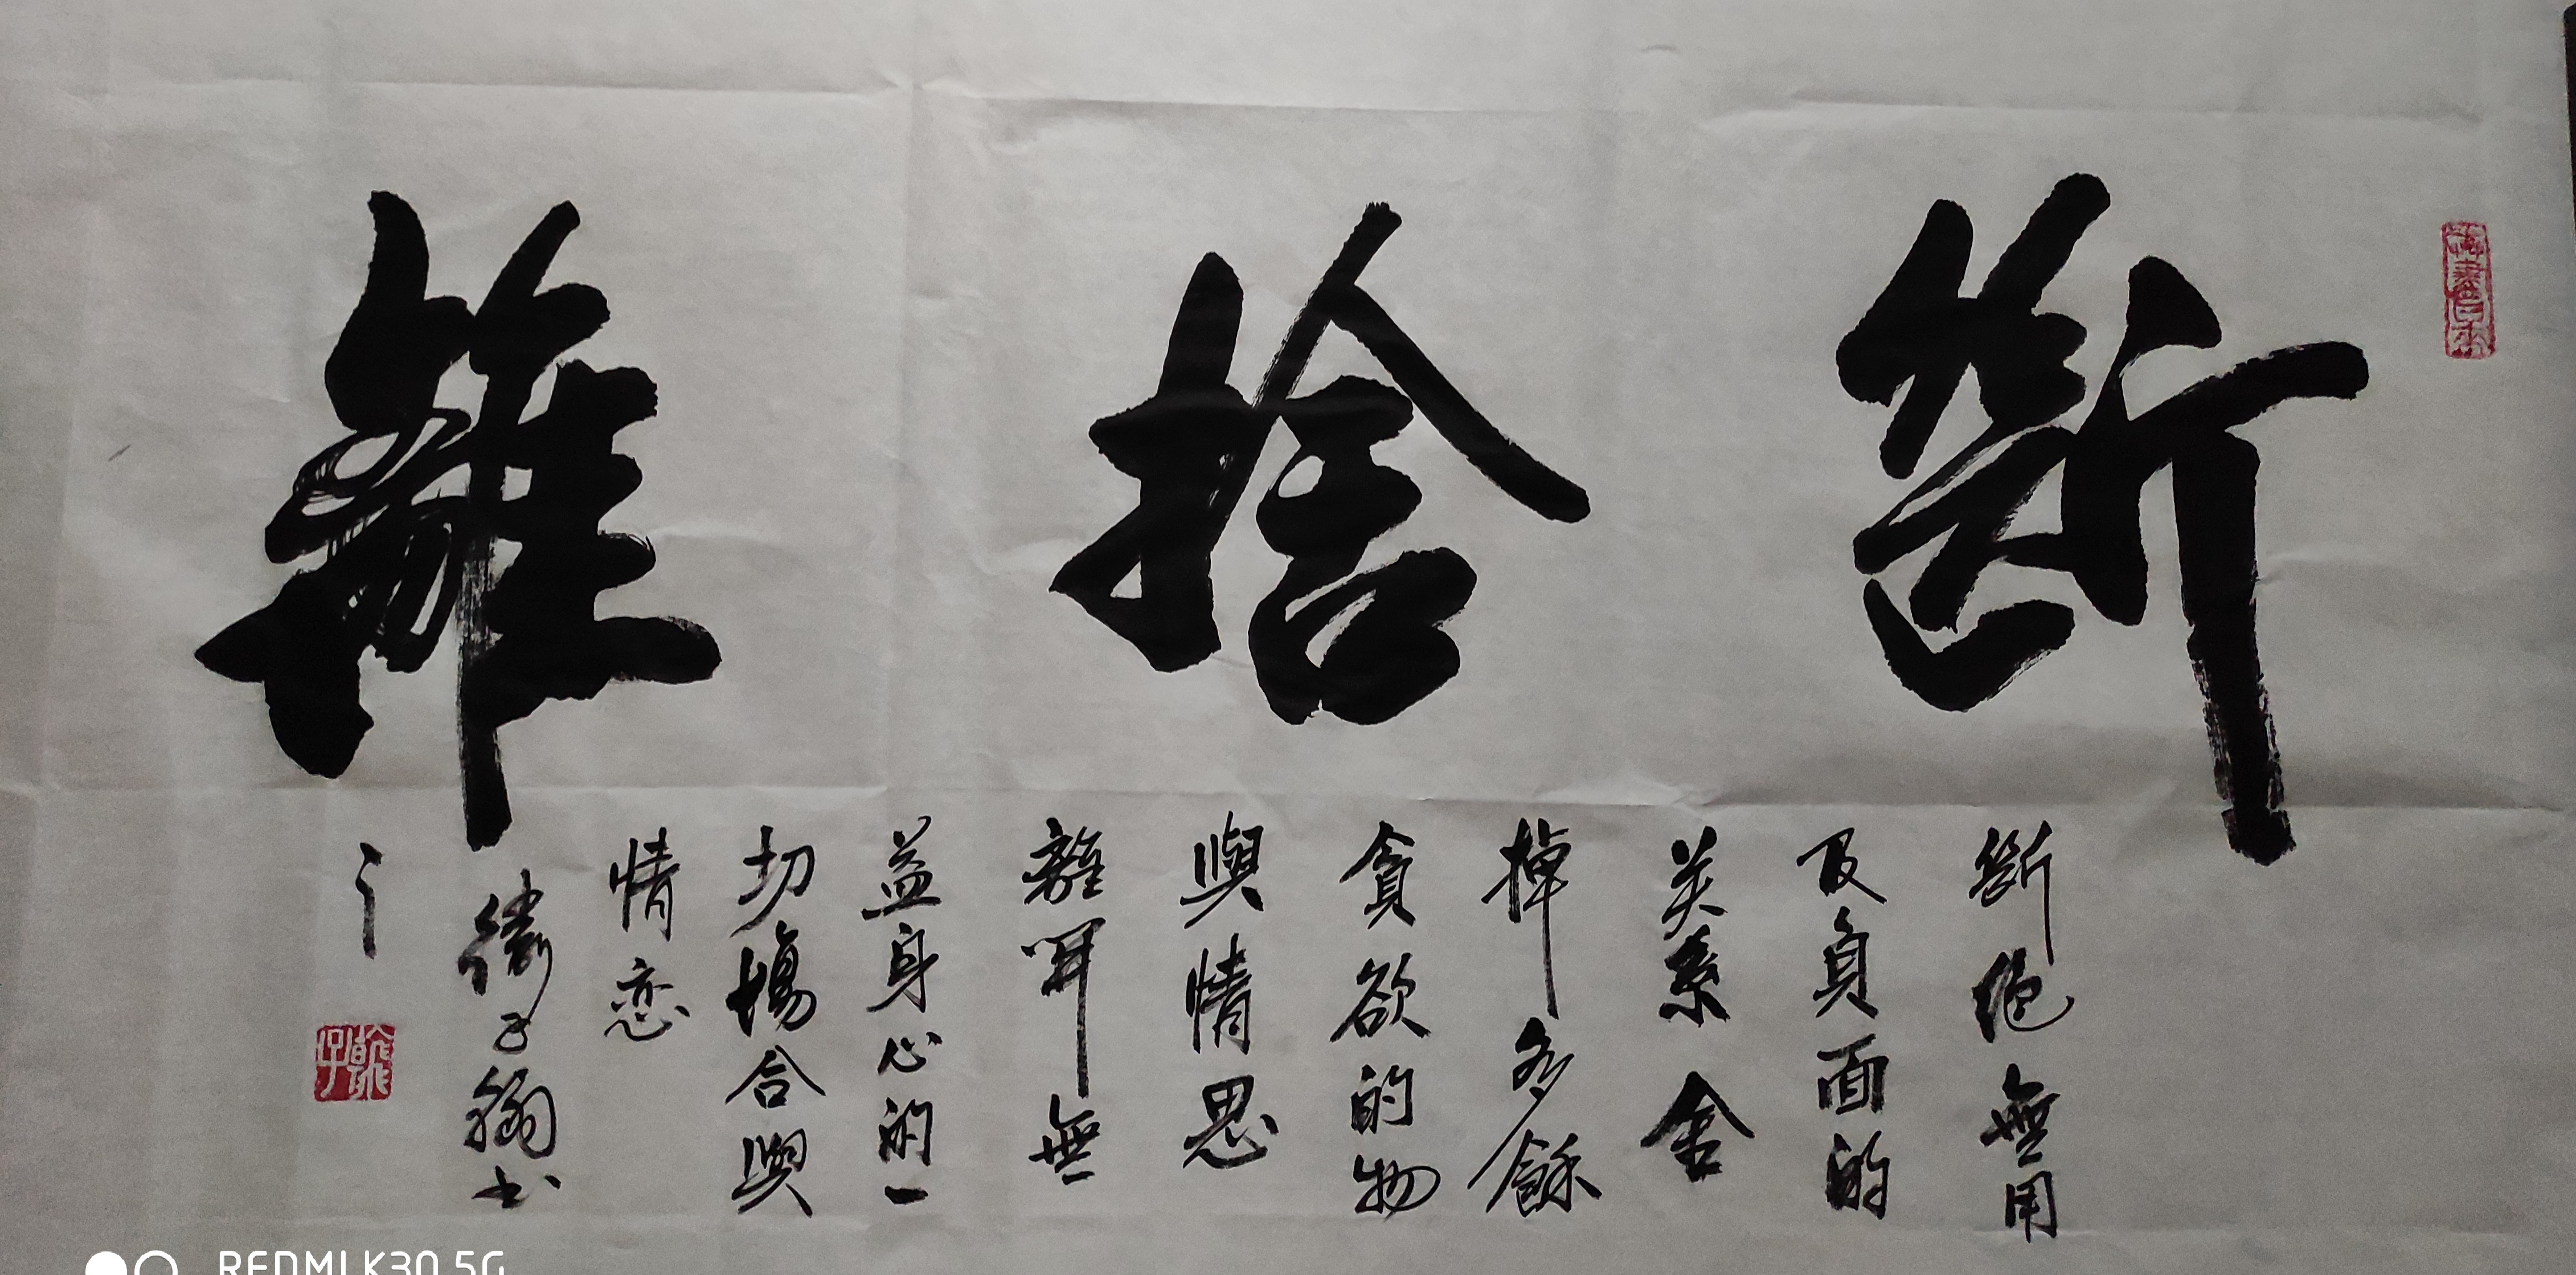 斷捨離
斷絕無用
及負面的
关系舍
掉多餘
貪欲的物
與情思
離開無
益身心的一
切場合與
情恋
子翰书
REDMI K30 5G